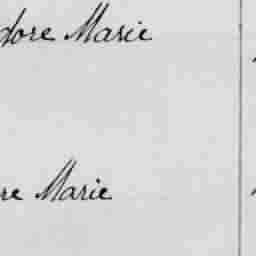 dore Marie
re Marie